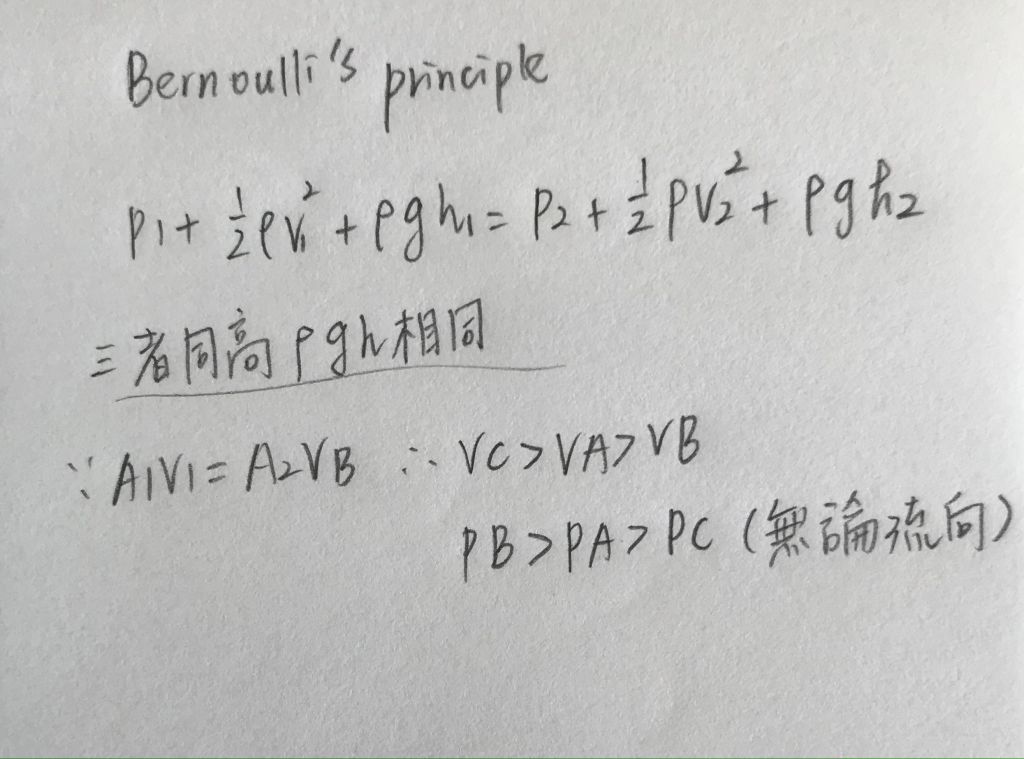 Bernoulli's principle
P1 + ½ρv₁² + ρgh₁ = P2 + ½ρv₂² + ρgh₂
三者同高 ρgh相同
∵ A1V1 = A2VB ∴ VC > VA > VB
PB > PA > PC (無論流向)